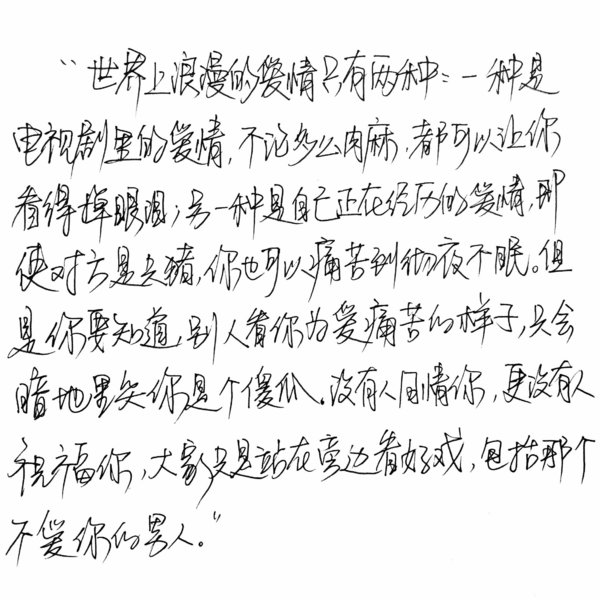 “世界上浪漫的爱情只有两种：一种是
电视剧里的爱情，不论多么肉麻，都可以让你
看得掉眼泪；另一种是自己正在经历的爱情，即
使对方是头猪，你也可以痛苦到彻夜不眠。但
是你要知道，别人看你为爱痛苦的样子，只会
暗地里笑你是个傻瓜。没有人同情你，更没有人
祝福你，大家只是站在旁边看好戏，包括那个
不爱你的男人。”